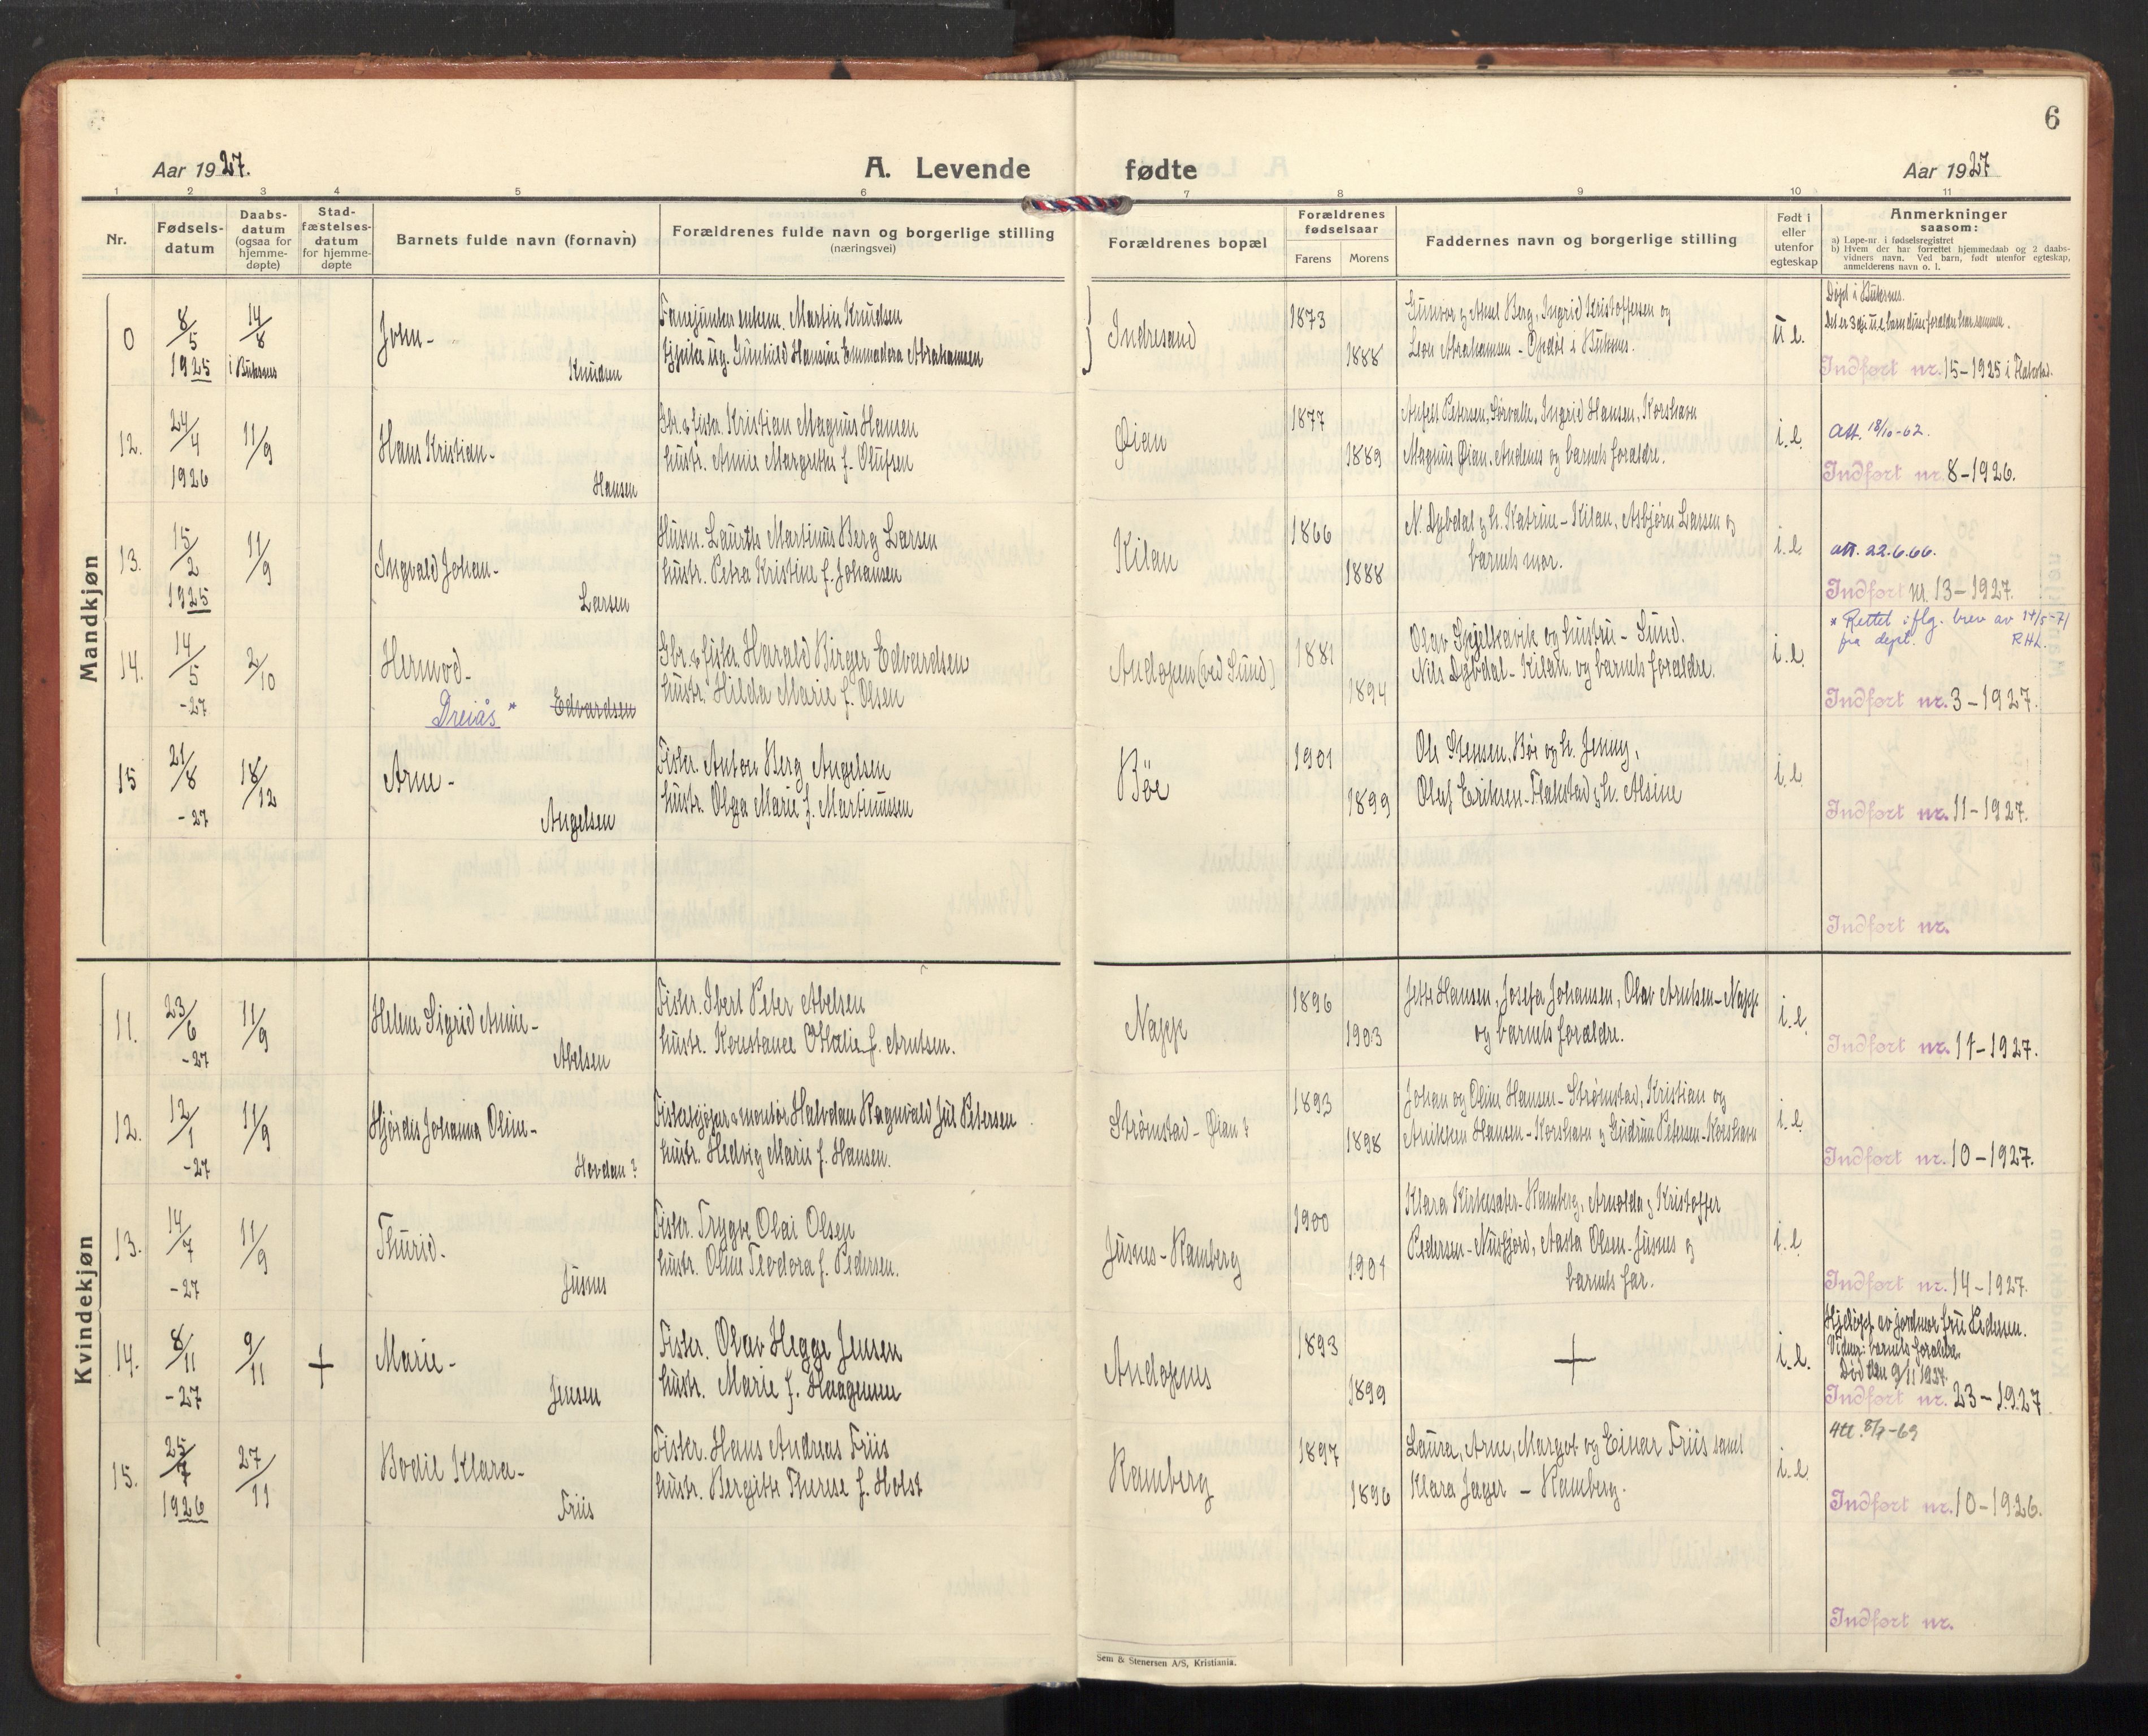 6
Aar 1927.
A. Levende
fødte
Aar 1927
1 2 3 4 5 6 7 8 9 10 11
Nr.
Fødsels-
datum
Daabs-
datum
(ogsaa for
hjemme-
døpte)
Stad-
fæstelses-
datum
for hjemme-
døpte
Barnets fulde navn (fornavn)
Forældrenes fulde navn og borgerlige stilling
(næringsvei)
Forældrenes bopæl
Forældrenes
fødselsaar
Farens
Morens
Faddernes navn og borgerlige stilling
Født i
eller
utenfor
egteskap
Anmerkninger
saasom:
a) Løpe-nr. i fødselsregistret
b) Hvem der har forrettet hjemmedaab og 2 daabs-
vidners navn. Ved barn, født utenfor egteskap,
anmelderens navn o. l.
Mandkjøn
0
8/5
1925
14/8
i Buksnes
John-
Knudsen
Martin Knudsen
ug. Gunhild Hansine Emmadora Abrahamsen
Indresand
1873
1888
Gunvor g Aksel Berg, Ingrid Kristoffersen og
Leon Abrahamsen - Opdøl i Buksnes.
u e.
Døpt i Buksnes.
Indført nr. 15-1925 i Flakstad.
12.
24/4
1926
11/9
Hans Kristian-
Hansen
Gbr. & fisker. Kristian Magnus Hansen
hustr. Annie Margrethe f. Olufsen
Øian
1877
1889
Petersen, Sørvalle, Ingrid Hansen, Korshavn
Magnus Øian, Andenes og barnets forældre.
i. e.
Att. 18/10-62.
Indført nr. 8-1926.
13.
15/2
1925
11/9
Ingvald Johan-
Larsen
Husm. Laurits Martinus Berg Larsen
hustr. Petra Kristine f. Johansen
Kilan
1866
1888
N. Dybdal g h. Katrine - Kilan, Asbjørn Larsen og
barnets mor.
i. e.
att. 22.6.66.
Indført nr. 13-1927.
14.
14/5
-27
2/10
Hermod-
Edvardsen
Dreiås *
Gbr. & fiskr. Harald Birger Edvardsen
hustr. Hilda Marie f. Olsen
Andopen (ved Sund)
1881
1894
Olav Skjelkavik og hustru - Sund.
Nils Dybdal - Kilan. og barnets forældre.
i. e.
* Rettet iflg. brev av 14/5-71
fra dept. RHL.
Indført nr. 3-1927.
15
21/8
-27
18/12
Arne-
Angelsen
Fiskr. Anton Berg Angelsen
hustr. Olga Marie f. Martinussen
Bøe
1901
1899
Ole Stensen, Bøe og h. Jenny,
Oluf Eriksen - Flakstad g h. Alsine
i. e.
Indført nr. 11-1927.
Indført nr.
Kvindekjøn
11.
23/6
-27
11/9
Helene Sigrid Annie-
Abelsen
Fiskr. Ibert Peter Abelsen
hustr. Konstance Othalie f. Arntsen.
Napp
1896
1903
Jette Hansen, Josefa Johansen, Olav Arntsen - Napp
og barnets forældre.
i. e.
Indført nr. 17-1927.
12.
12/1
-27
11/9
Hjørdis Johanna Oline-
Hovdan?
Fiskekjøper & montør Halvdan Ragnvald Jul Petersen
hustr. Hedvig Marie f. Hansen.
Strømstad - Øian?
1893
1898
Johan og Oline Hansen - Strømstad, Kristian og
Anikken Hansen - Korshavn g Gudrun Petersen - Korshavn
i. e.
Indført nr. 10-1927.
13.
14/7
-27
11/9
Thurid.
Jusnes
Fiskr. Trygve Olai Olsen
hustr. Oline Teodora f. Pedersen.
Jusnes - Ramberg
1900
1901
Klara Kirkesæter - Ramberg, Arnolda g Kristoffer
Pedersen - Nusfjord, Aasta Olsen - Jusnes g
barnets far.
i. e.
Indført nr. 14-1927.
14.
8/11
-27
9/11
+
Marie-
Jensen
Fiskr. Olav Hegge Jensen
hustr. Marie f. Haagensen
Andopnes
1893
1899
+
i. e.
Hjdøpt av jordmor fru Pedersen.
Vidner: barnets forældre.
Død den 9/11 1927.
Indført nr. 23-1927
15.
25/7
1926
27/11
Bodil Klara-
Friis
Fiskr. Hans Andreas Friis
hustr. Bergitte Therese f. Holst
Ramberg
1897
1896
Laura, Arne, Margot og Einar Friis samt
Klara Jager - Ramberg.
i. e.
Att. 8/7-69
Indført nr. 10-1926.
Indført nr.
Sem & Stenersen A/S, Kristiania.